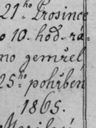 21ho Prosince
o 10. hod. rá-
no zemřel
25ho pohřben
1865.